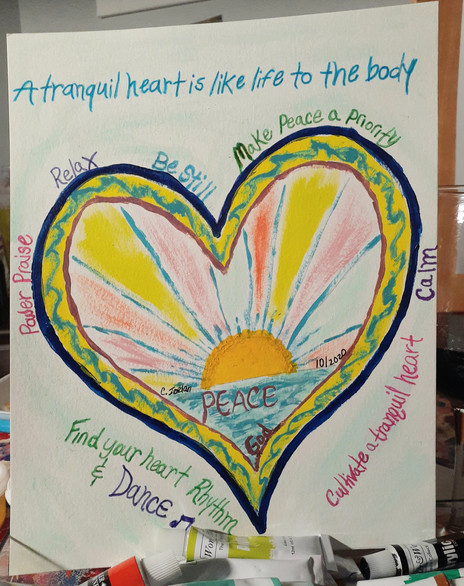 A tranquil heart is like life to the body
Make Peace a Priority
Be Still
Relax
Calm
Praise
C. Jordan
10/2020
PEACE
God
Cultivate a tranquil heart
Find your heart Rhythm
& Dance